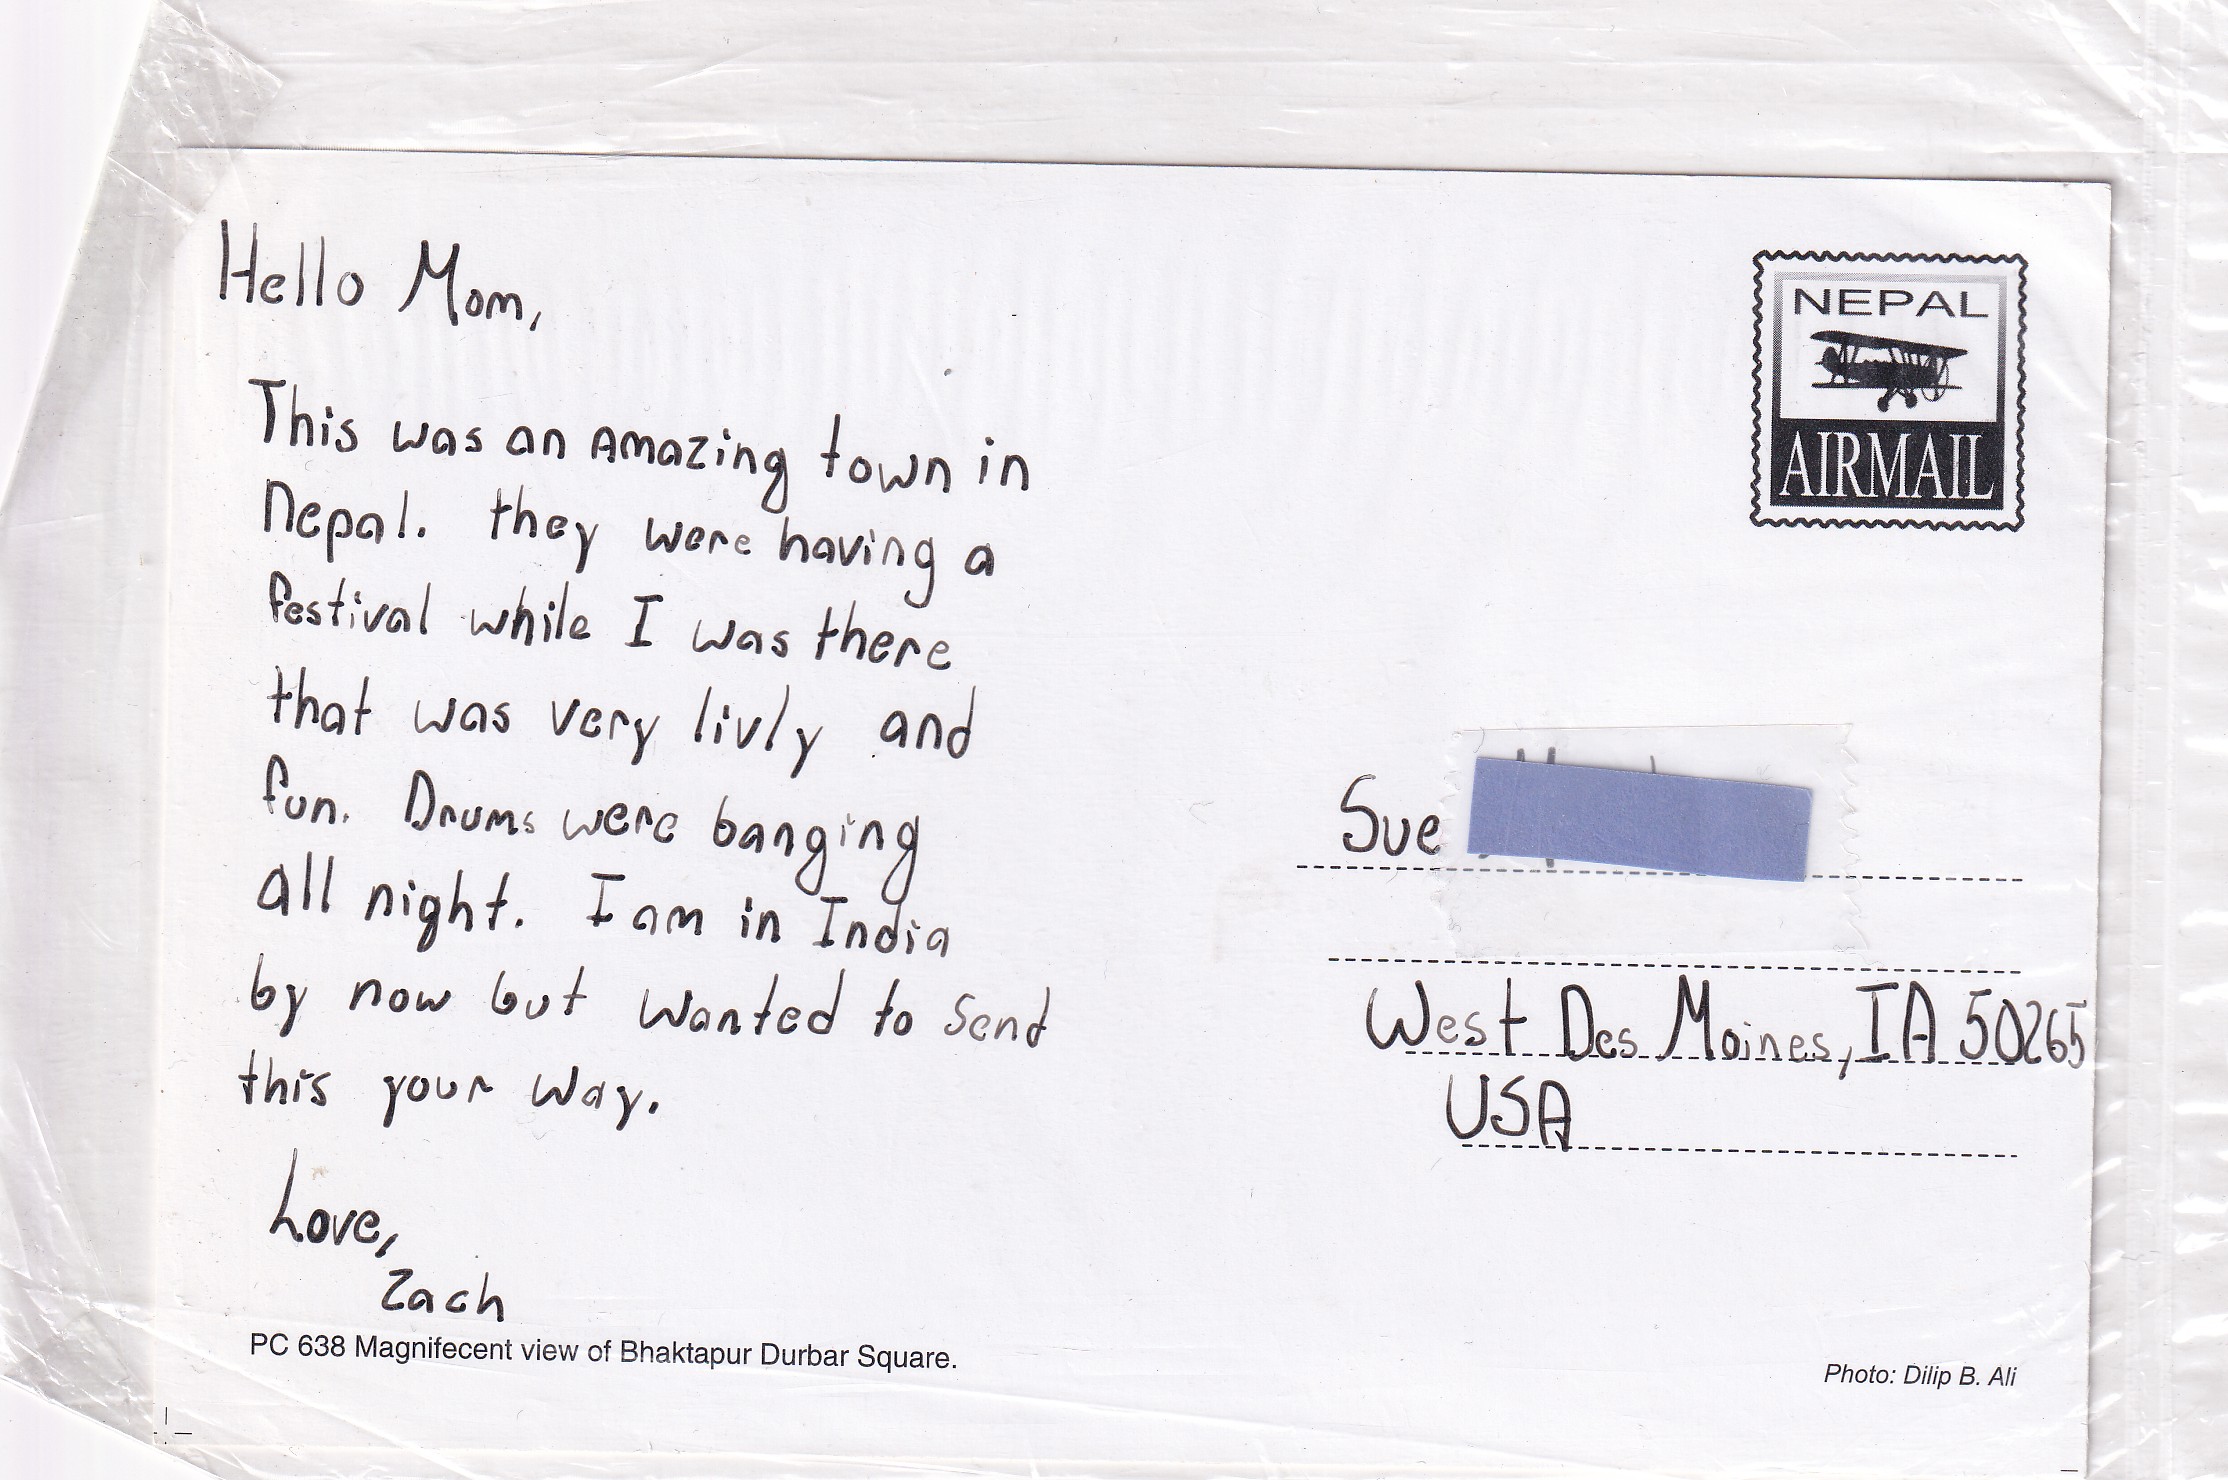 Hello Mom,
This was an amazing town in
Nepal. they were having a
festival while I was there
that was very livly and
fun. Drums were banging
all night. I am in India
by now but wanted to send
this your way.
Love,
Zach
PC 638 Magnifecent view of Bhaktapur Durbar Square.
NEPAL
AIRMAIL
Sue
West Des Moines, IA 50265
USA
Photo: Dilip B. Ali